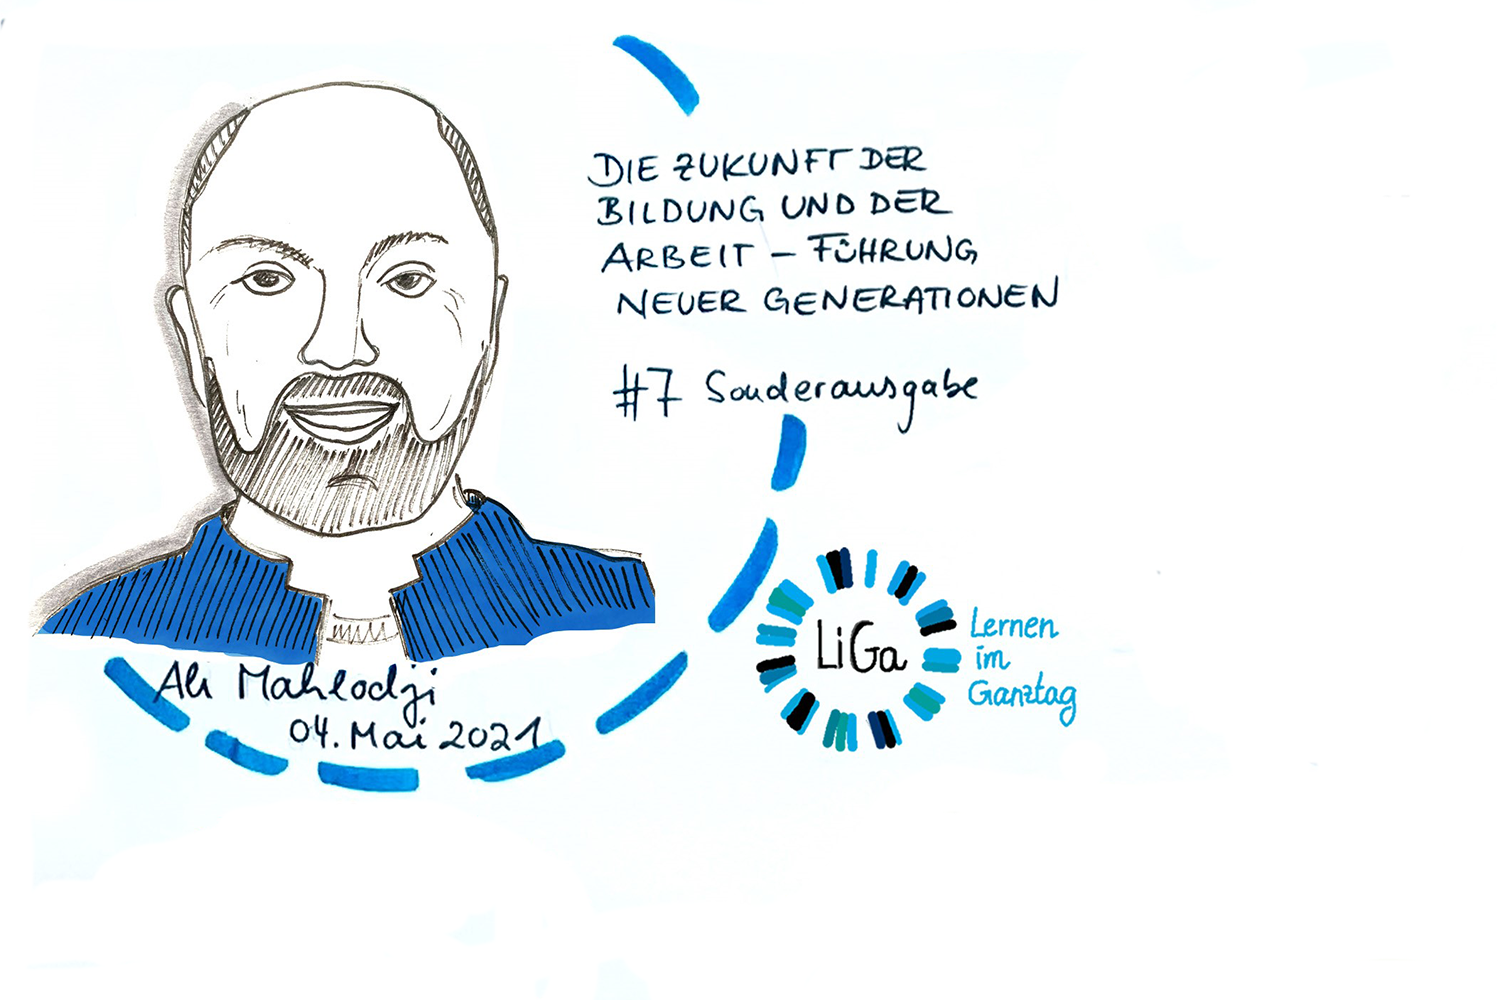 DIE ZUKUNFT DER
BILDUNG UND DER
ARBEIT – FÜHRUNG
NEUER GENERATIONEN
#7 Sonderausgabe
LiGa
Lernen
im
Ganztag
Ali Mahlodji
04. Mai 2021